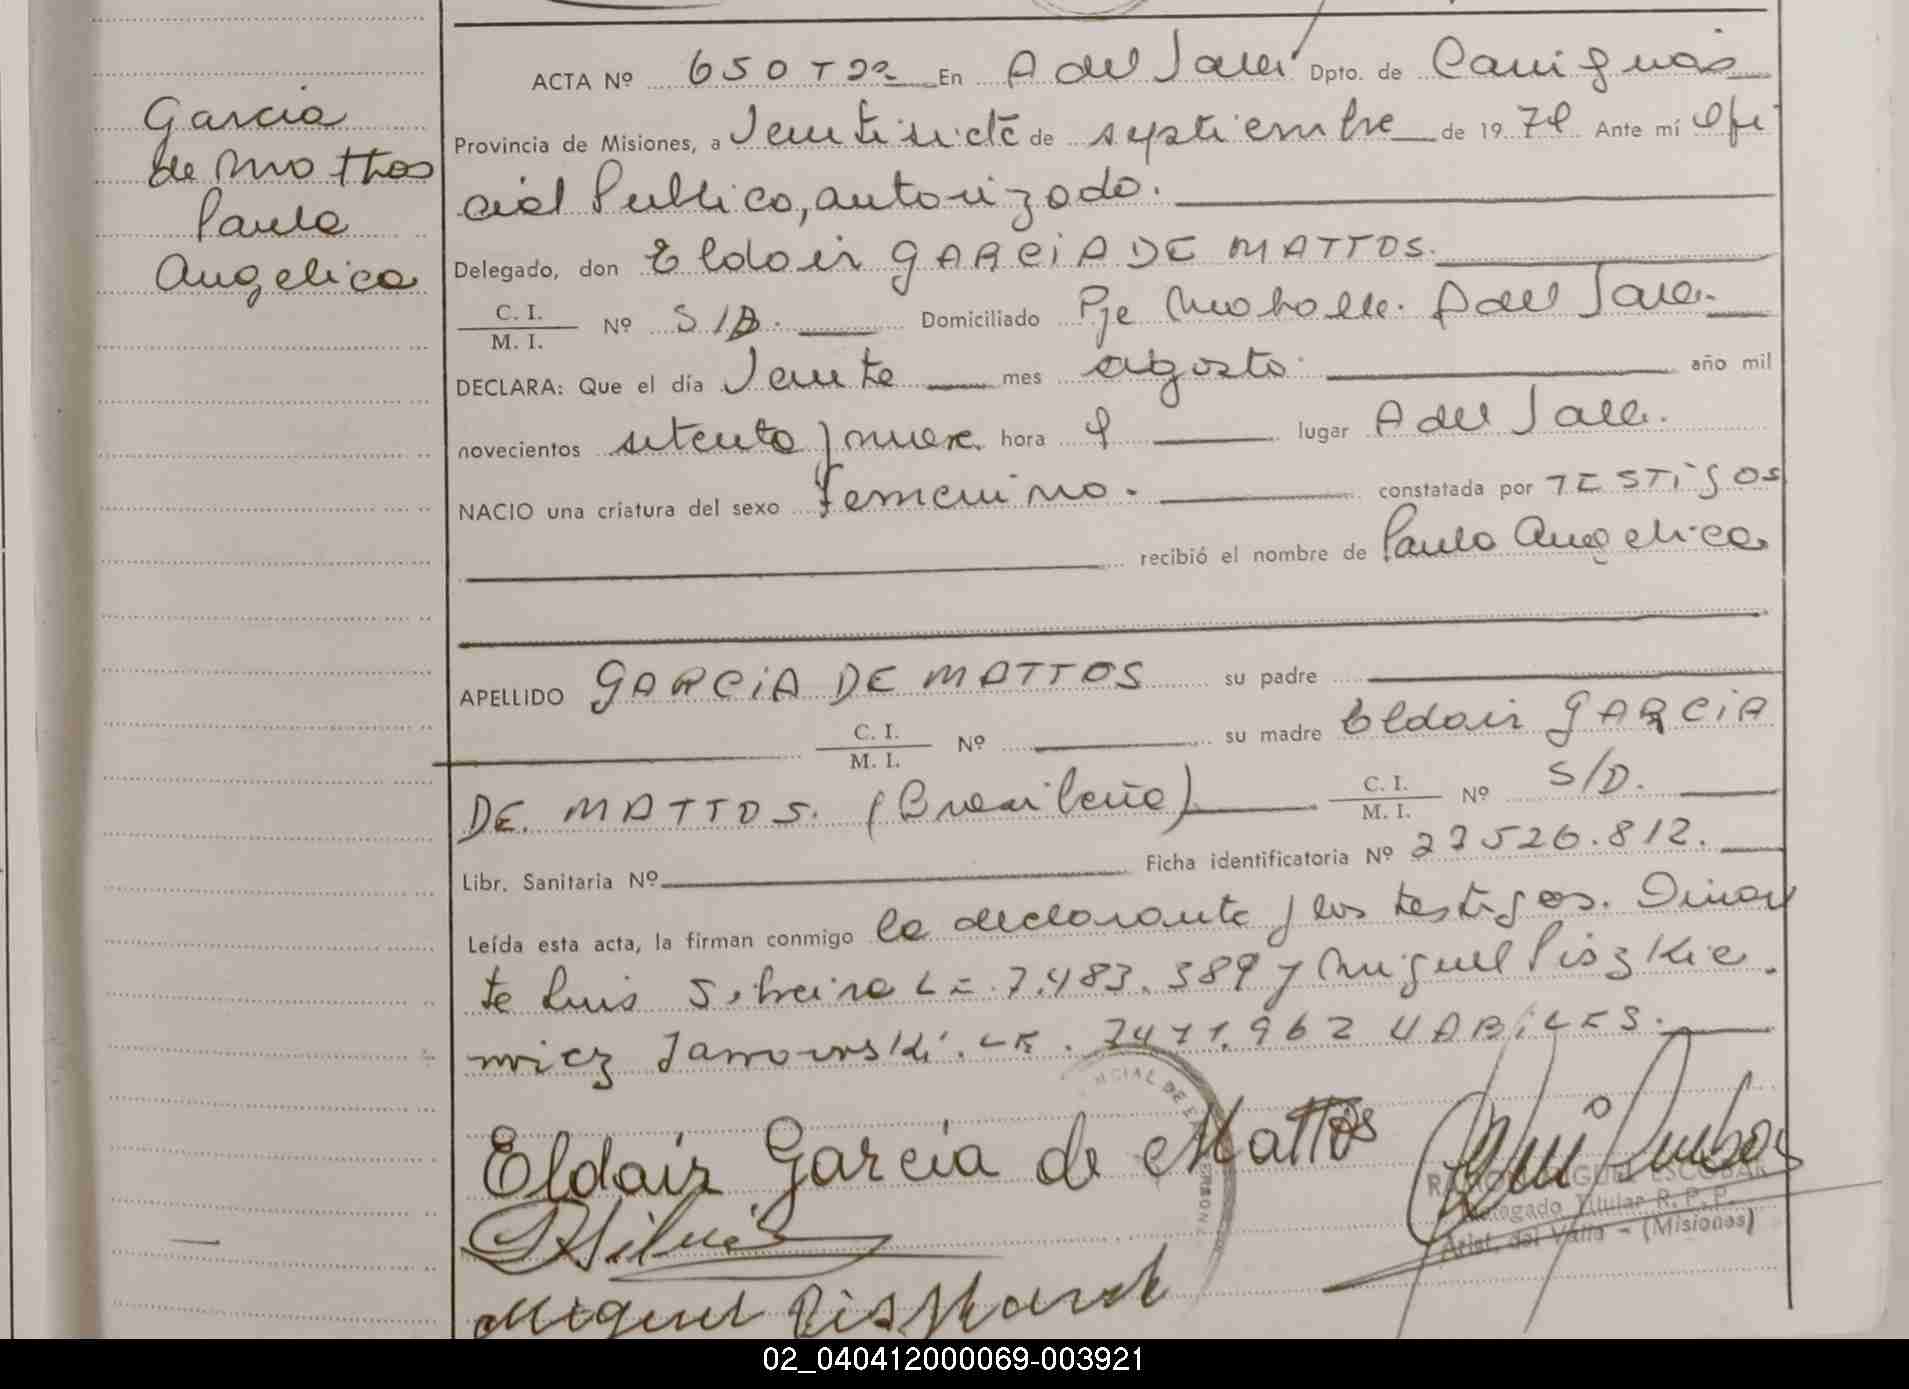 Garcia
de Mattos
Paula
Angelica
ACTA Nº 650 T 2º En A del Valle Dpto. de Cainguás
Provincia de Misiones, a Veintisiete de septiembre de 1979 Ante mí Ofi
cial Publico, autorizado.
Delegado, don Eldair GARCIA DE MATTOS.
C. I.
M. I. Nº S/D. Domiciliado Pje A del Valle.
DECLARA: Que el día Veinte mes agosto año mil
novecientos setenta y nueve hora 9 lugar A del Valle.
NACIO una criatura del sexo femenino. constatada por TESTIGOS
recibió el nombre de Paula Angelica
APELLIDO GARCIA DE MATTOS su padre
C. I.
M. I. Nº su madre Eldair GARCIA
DE MATTOS. (Brasileña) C. I.
M. I. Nº S/D.
Libr. Sanitaria Nº Ficha identificatoria Nº 27526.812.
Leída esta acta, la firman conmigo la declarante y los testigos.
te Luis Silveira LE 7.483.389 y Miguel Piszkie
wicz Janowski. LE. 7471.962 HABILES.
Eldair Garcia de Mattos
RAMON MIGUEL ESCOBAR
Delegado Titular R. P. P.
Arist. del Valle - (Misiones)
Miguel
02_040412000069-003921